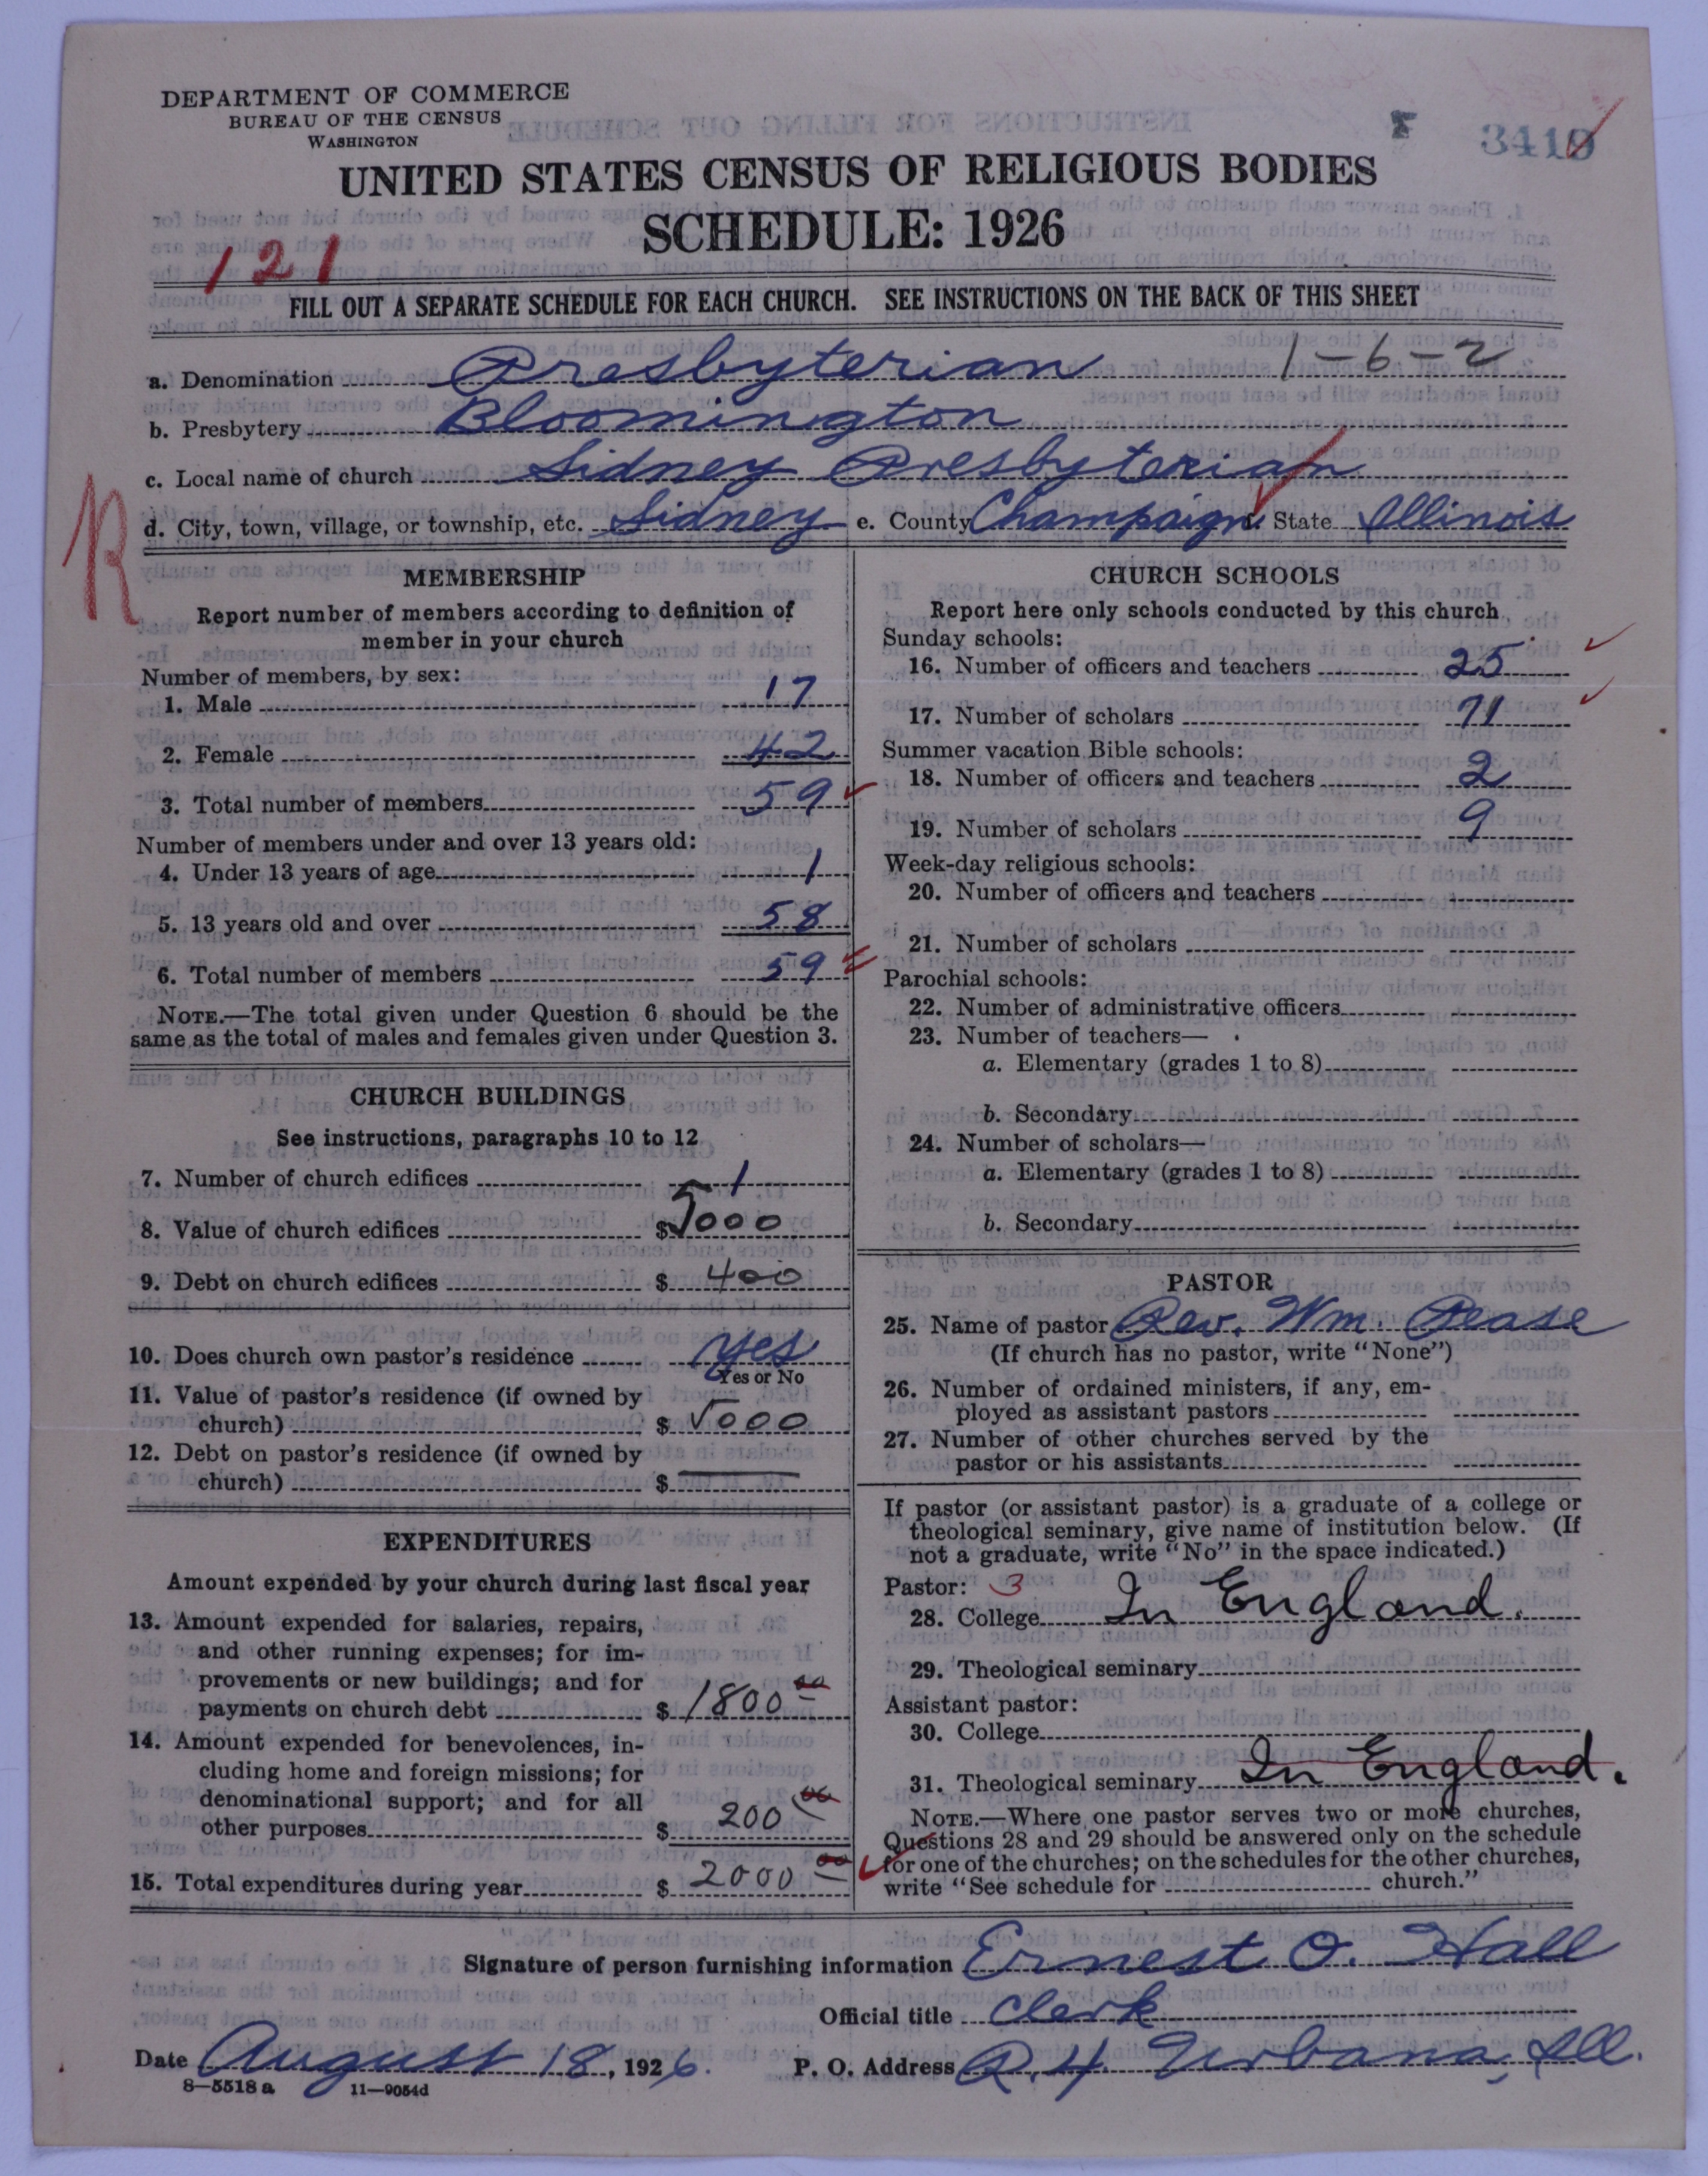 DEPARTMENT OF COMMERCE
BUREAU OF THE CENSUS
WASHINGTON
UNITED STATES CENSUS OF RELIGIOUS BODIES
SCHEDULE: 1926
121
FILL OUT A SEPARATE SCHEDULE FOR EACH CHURCH. SEE INSTRUCTIONS ON THE BACK OF THIS SHEET
a. Denomination Presbyterian 1-6-2
b. Presbytery Bloomington
c. Local name of church Sidney Presbyterian
d. City, town, village, or township, etc. Sidney e. County Champaign State Illinois
R
MEMBERSHIP
Report number of members according to definition of
member in your church
Number of members, by sex:
1. Male 17
2. Female 42
3. Total number of members 59
Number of members under and over 13 years old:
4. Under 13 years of age 1
5. 13 years old and over 58
6. Total number of members 59
NOTE.—The total given under Question 6 should be the
same as the total of males and females given under Question 3.
CHURCH BUILDINGS
See instructions, paragraphs 10 to 12
7. Number of church edifices 1
8. Value of church edifices $5000
9. Debt on church edifices $ 400
10. Does church own pastor's residence yes
Yes or No
11. Value of pastor's residence (if owned by
church) $ 5000
12. Debt on pastor's residence (if owned by
church) $ —
EXPENDITURES
Amount expended by your church during last fiscal year
13. Amount expended for salaries, repairs,
and other running expenses; for im-
provements or new buildings; and for
payments on church debt $ 1800 00
14. Amount expended for benevolences, in-
cluding home and foreign missions; for
denominational support; and for all
other purposes $ 200 00
15. Total expenditures during year $ 2000 00
CHURCH SCHOOLS
Report here only schools conducted by this church
Sunday schools:
16. Number of officers and teachers 25
17. Number of scholars 71
Summer vacation Bible schools:
18. Number of officers and teachers 2
19. Number of scholars 9
Week-day religious schools:
20. Number of officers and teachers
21. Number of scholars
Parochial schools:
22. Number of administrative officers
23. Number of teachers—
a. Elementary (grades 1 to 8)
b. Secondary
24. Number of scholars—
a. Elementary (grades 1 to 8)
b. Secondary
PASTOR
25. Name of pastor Rev. Wm. Pease
(If church has no pastor, write "None")
26. Number of ordained ministers, if any, em-
ployed as assistant pastors
27. Number of other churches served by the
pastor or his assistants
If pastor (or assistant pastor) is a graduate of a college or
theological seminary, give name of institution below. (If
not a graduate, write "No" in the space indicated.)
Pastor: 3
28. College In England.
29. Theological seminary
Assistant pastor:
30. College
31. Theological seminary In England.
NOTE.—Where one pastor serves two or more churches,
Questions 28 and 29 should be answered only on the schedule
for one of the churches; on the schedules for the other churches,
write "See schedule for church."
Signature of person furnishing information Ernest O. Hall
Official title Clerk
Date August 18, 1926. P. O. Address R. 4 Urbana, Ill.
8—5518 a 11—9054d